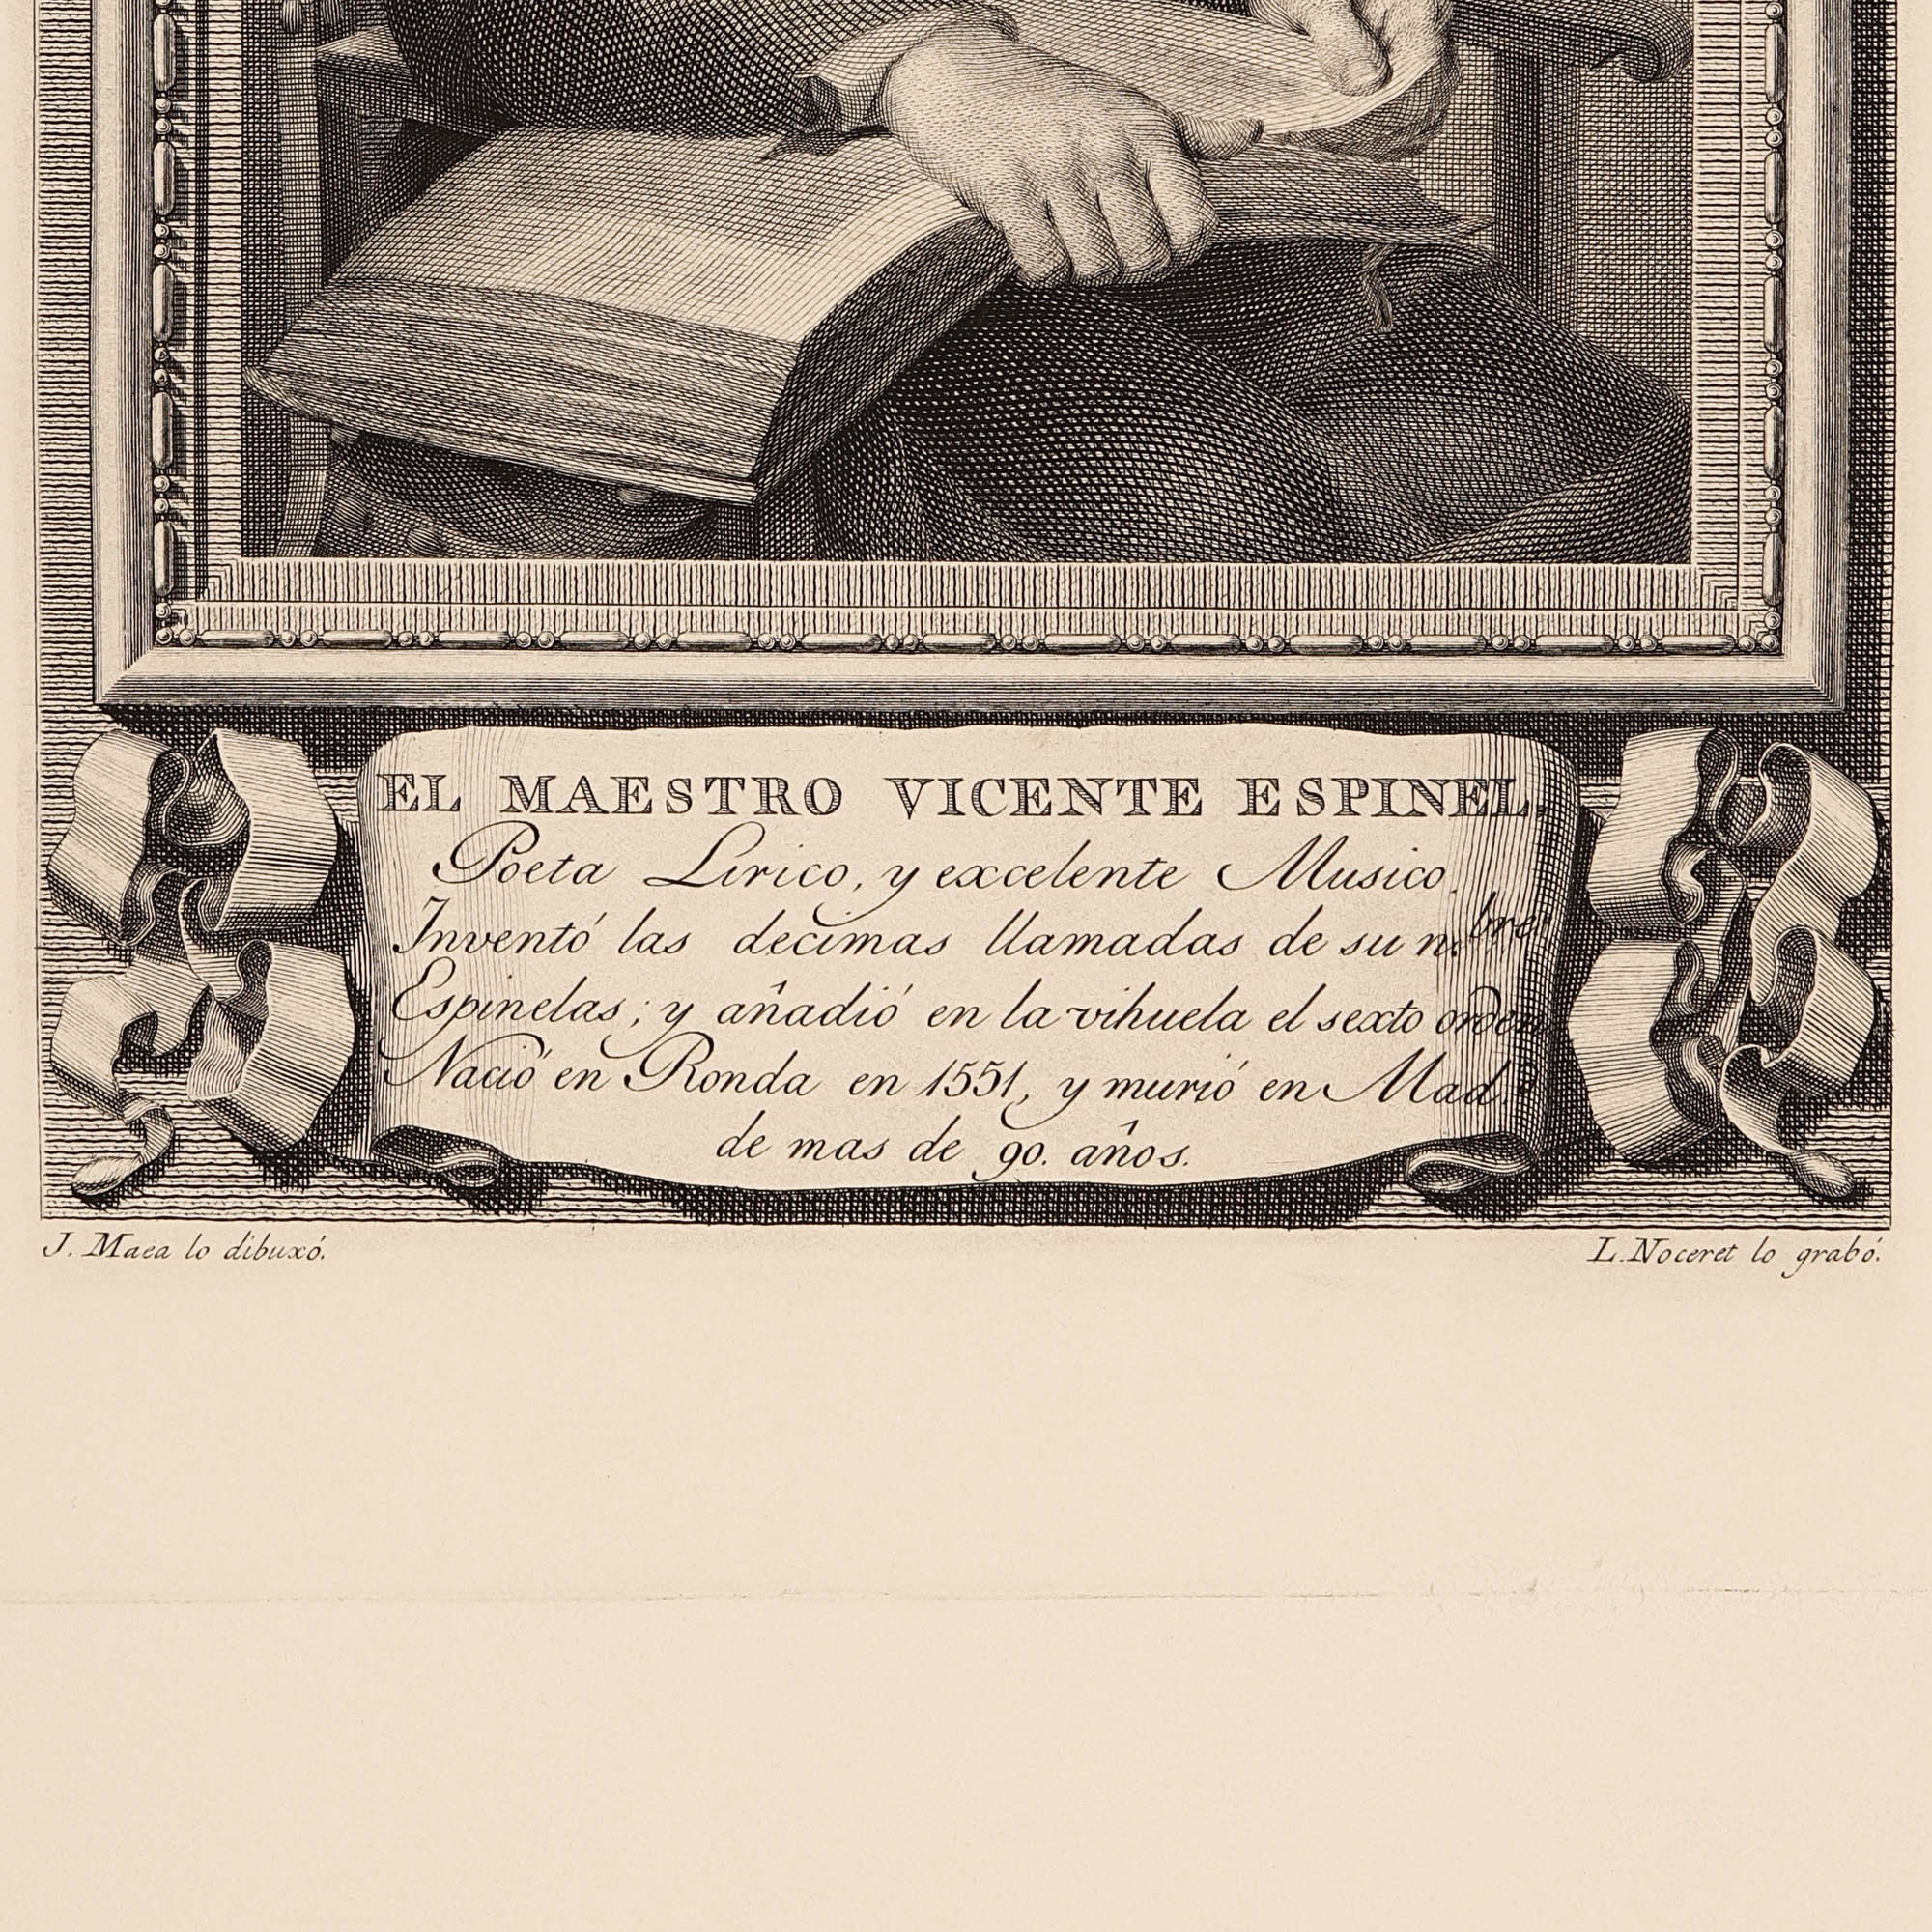 EL MAESTRO VICENTE ESPINEL.
Poeta Lirico, y excelente Musico.
Inventó las decimas llamadas de su n.bre
Espinelas; y añadió en la vihuela el sexto orden
Nació en Ronda en 1551, y murió en Mad.d
de mas de 90. años.
J. Maea lo dibuxó.
L. Noceret lo grabó.